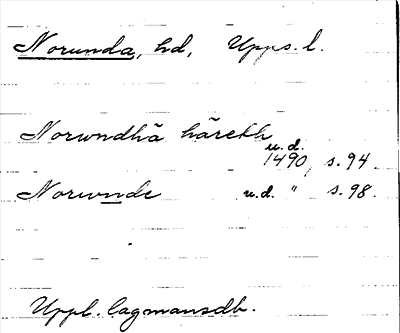 Norunda, hd, Upps. l.
Norwndhā hāretth
u.d.
1490, s. 94.
Norwnde u.d. " s. 98.
Uppl. lagmansdb.